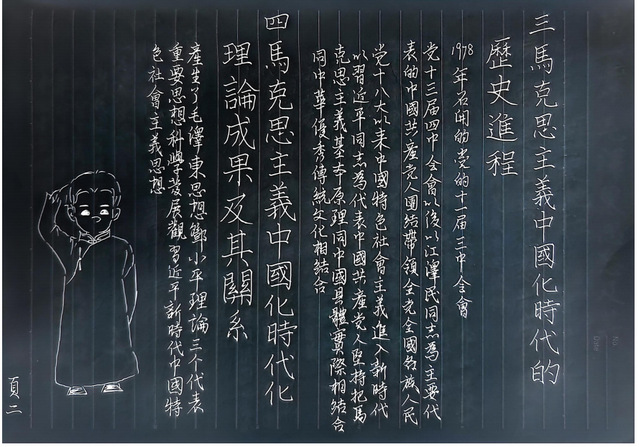 三馬克思主義中國化時代的
歷史進程
1978年召開的党的十一届三中全會
党十三届四中全會以後以江澤民同志為主要代
表的中國共産党人團结帶領全党全國各族人民
党十八大以来中國特色社會主義進入新時代
以習近平同志為代表中國共産党人堅持把馬
克思主義基本原理同中國具體實際相結合
同中華優秀傳統文化相結合
四馬克思主義中國化時代化
理論成果及其關系
產生了毛澤東思想鄧小平理論三个代表
重要思想科學发展觀習近平新時代中國特
色社會主義思想
頁二